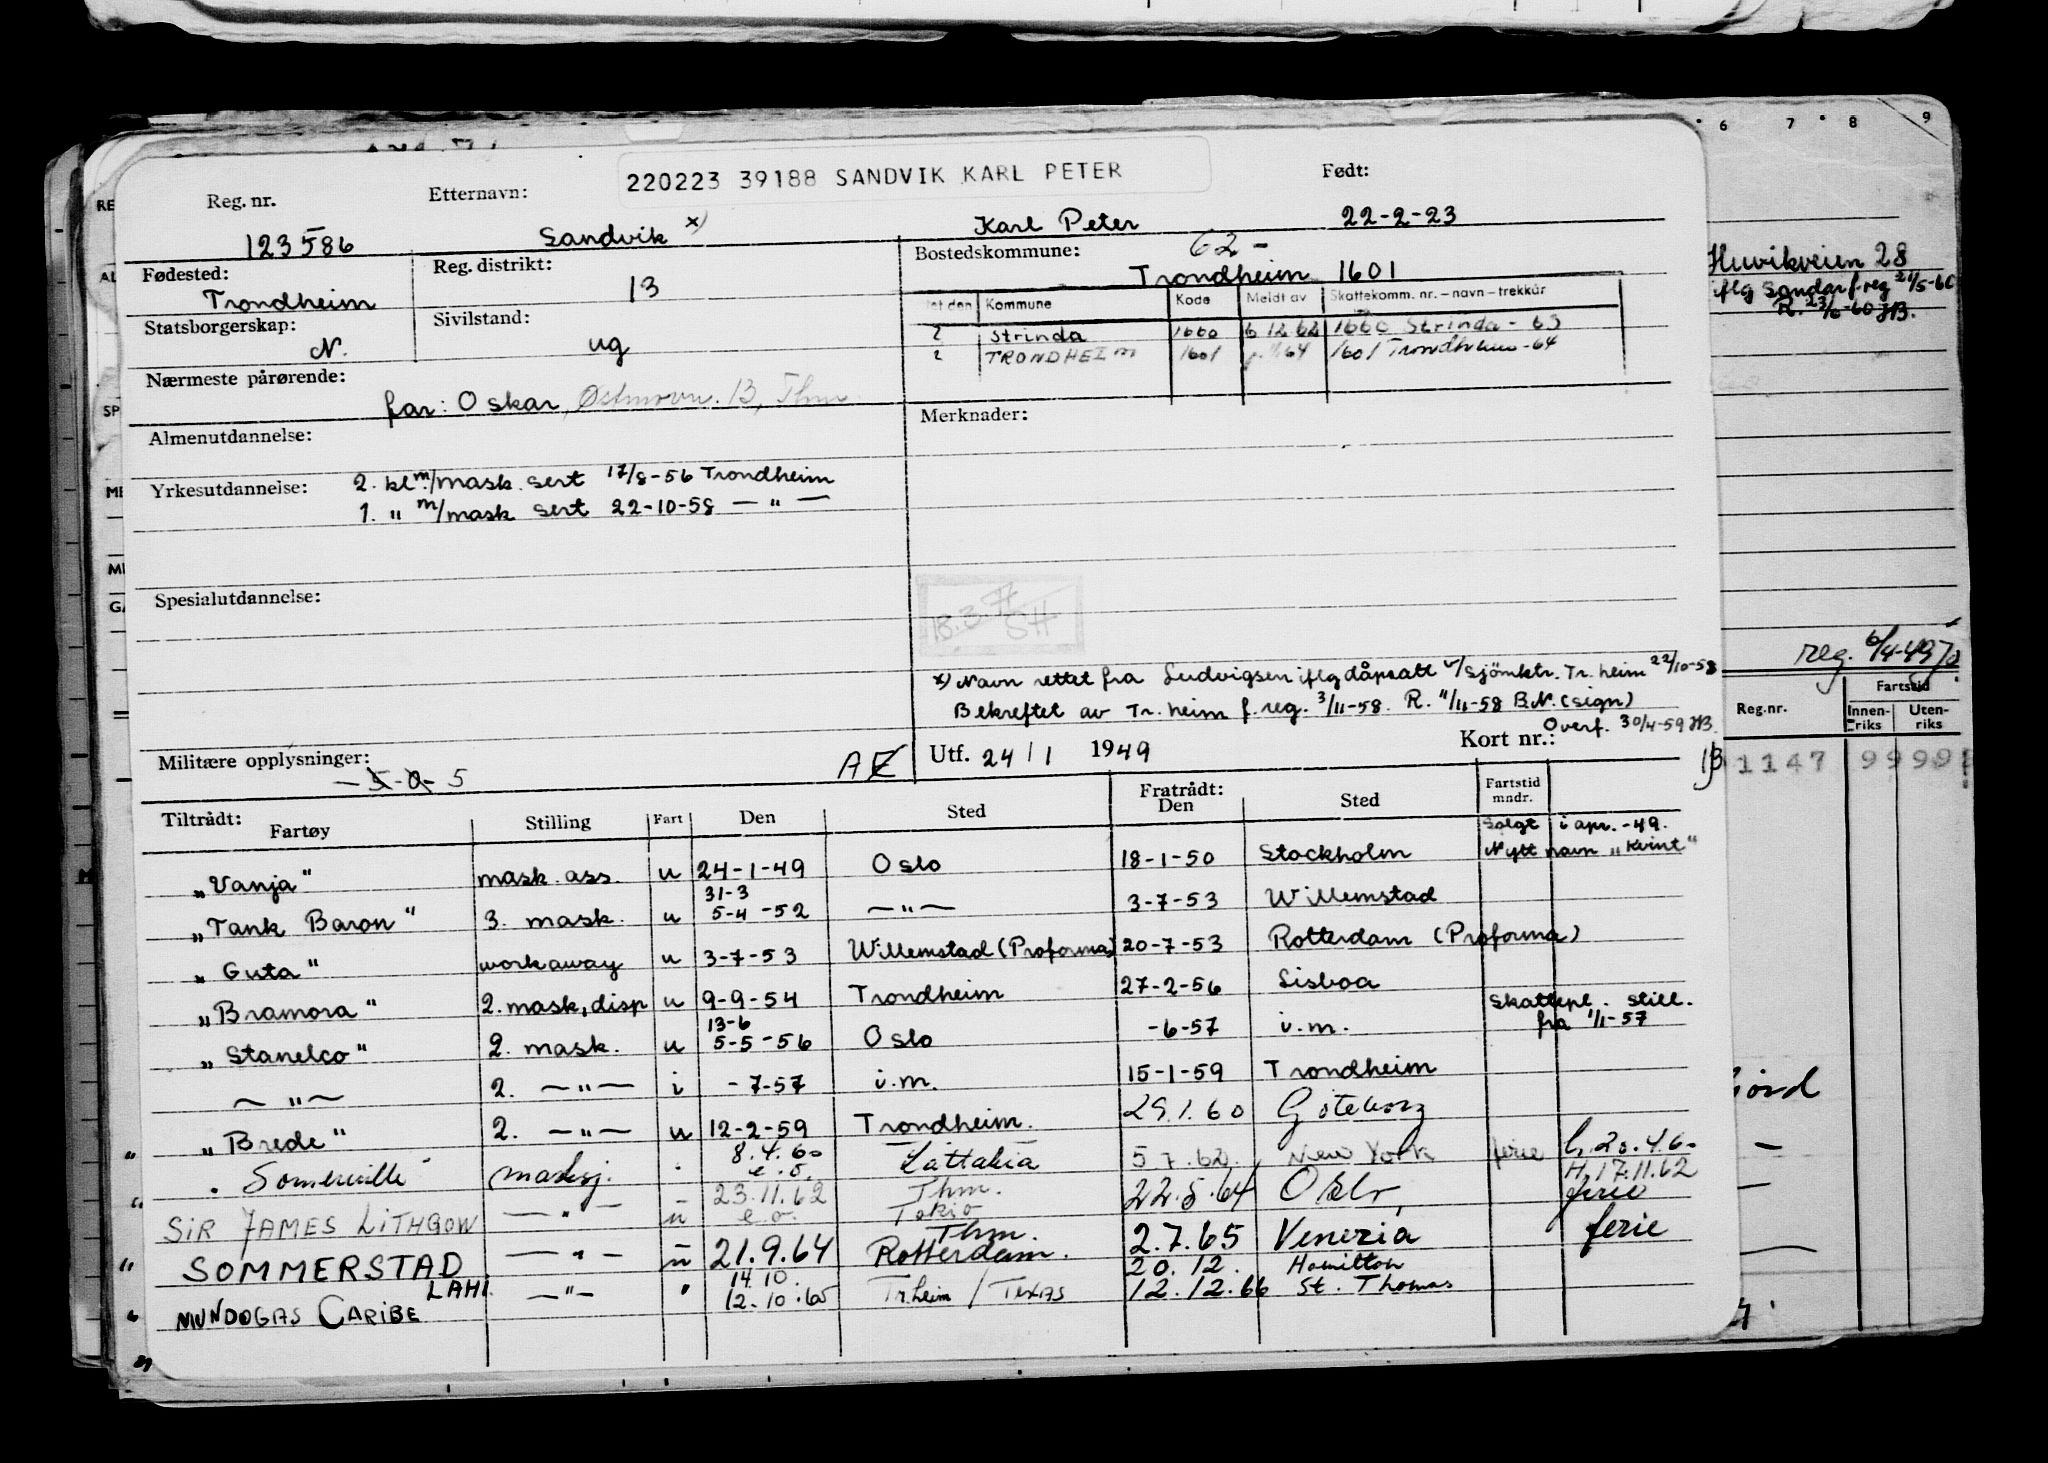 6 7 8 9
220223 39188 SANDVIK KARL PETER
Reg. nr. Etternavn: Født:
123586 Sandvik x) Karl Peter 22-2-23
Fødested: Reg. distrikt: Bostedskommune: 62-
Trondheim 13 Trondheim 1601
Statsborgerskap: Sivilstand: Kommune Kode Meldt av Skattekomm. nr. – navn – trekkår
N. ug Strinda 1660 6 12 62 1660 Strinda - 63
TRONDHEIM 1601 64 1601 Trondheim -64
Nærmeste pårørende:
far: Oskar, Østmovn. 13, Thm
Almenutdannelse: Merknader:
Yrkesutdannelse: 2. kl m/mask. sert 17/8-56 Trondheim
1. " m/mask sert 22-10-58 — " —
Spesialutdannelse:
x) Navn rettet fra Ludvigsen iflg dåpsatt v/ Sjömktr. Tr. heim 22/10-58
Bekreftet av Tr. heim f. reg. 3/11-58. R. 11/11-58 B.N. (sign)
Overf. 30/4-59 JB.
Militære opplysninger: Utf. 24/1 1949 Kort nr.:
5 AE
Tiltrådt: Fartøy Stilling Fart Den Sted Fratrådt: Den Sted Fartstid mndr.
Solgt i apr. -49.
"Vanja" mask. ass. u 24-1-49 Oslo 18-1-50 Stockholm Nytt navn "Kvint"
31-3
"Tank Baron" 3. mask. u 5-4-52 — " — 3-7-53 Willemstad
"Guta" workaway u 3-7-53 Willemstad (Proforma) 20-7-53 Rotterdam (Proforma)
"Bramora" 2. mask, disp u 9-9-54 Trondheim 27-2-56 Lisboa
13-6 Skattepl. still.
"Stanelco" 2. mask. u 5-5-56 Oslo -6-57 i.m. fra 1/1-57
— " — 2. — " — i -7-57 i.m. 15-1-59 Trondheim
"Brede" 2. — " — u 12-2-59 Trondheim. 29.1.60 Göteborg
8.4.60 20.4.60
" Somerville masksj. e.o. Lattakia 5 7.62. New York ferie H. 17.11.62
23.11.62 Thm.
SIR JAMES LITHGOW — " — u e.o. Tokio 22.5.64 Oslo ferie
Thm.
SOMMERSTAD — " — u 21.9.64 Rotterdam. 2.7.65 Venezia ferie
LAHI 14.10 20.12. Hamilton
MUNDOGAS CARIBE — " — " 12.10.65 Tr.heim / TEXAS 12.12.66 St. Thomas
Huvikveien 28
iflg Sandar f. reg 21/5-60
R. 23/6-60 JB.
reg. 6/4-49
Fartstid
Reg.nr. Innen-riks Uten-riks
1147